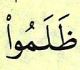 ظَلَمُوا۟